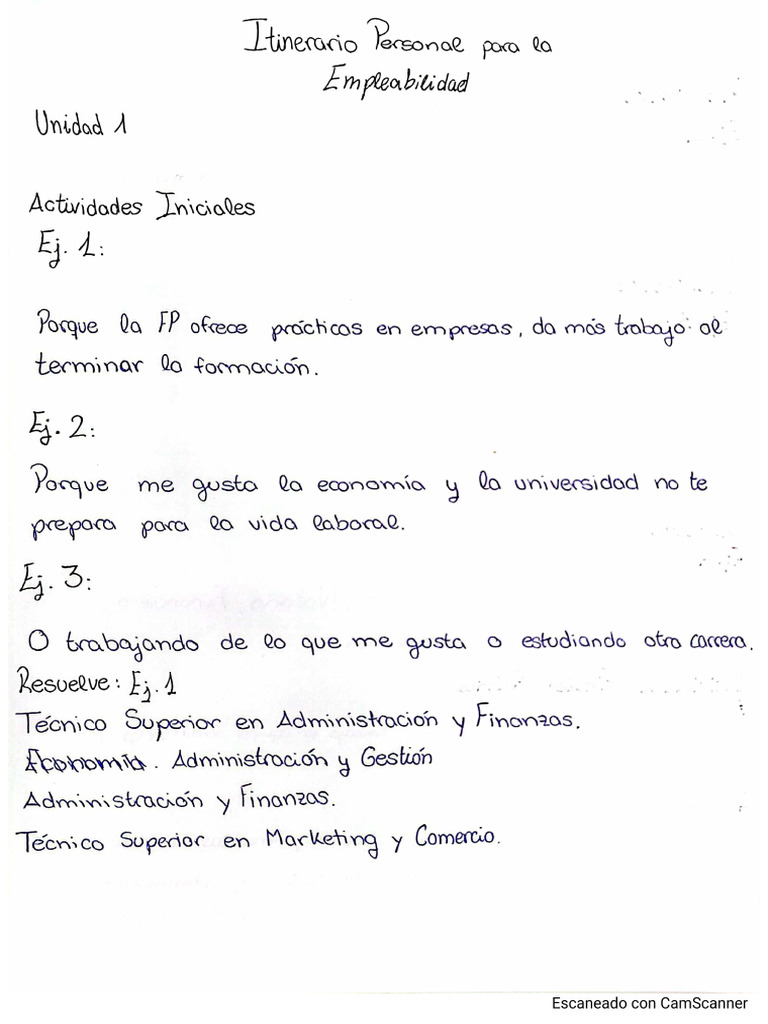 Itinerario Personal para la
Empleabilidad
Unidad 1
Actividades Iniciales
Ej. 1:
Porque la FP ofrece prácticas en empresas, da más trabajo al
terminar la formación.
Ej. 2:
Porque me gusta la economía y la universidad no te
prepara para la vida laboral.
Ej. 3:
O trabajando de lo que me gusta o estudiando otra carrera.
Resuelve: Ej. 1
Técnico Superior en Administración y Finanzas.
Economía. Administración y Gestión
Administración y Finanzas.
Técnico Superior en Marketing y Comercio.
Escaneado con CamScanner